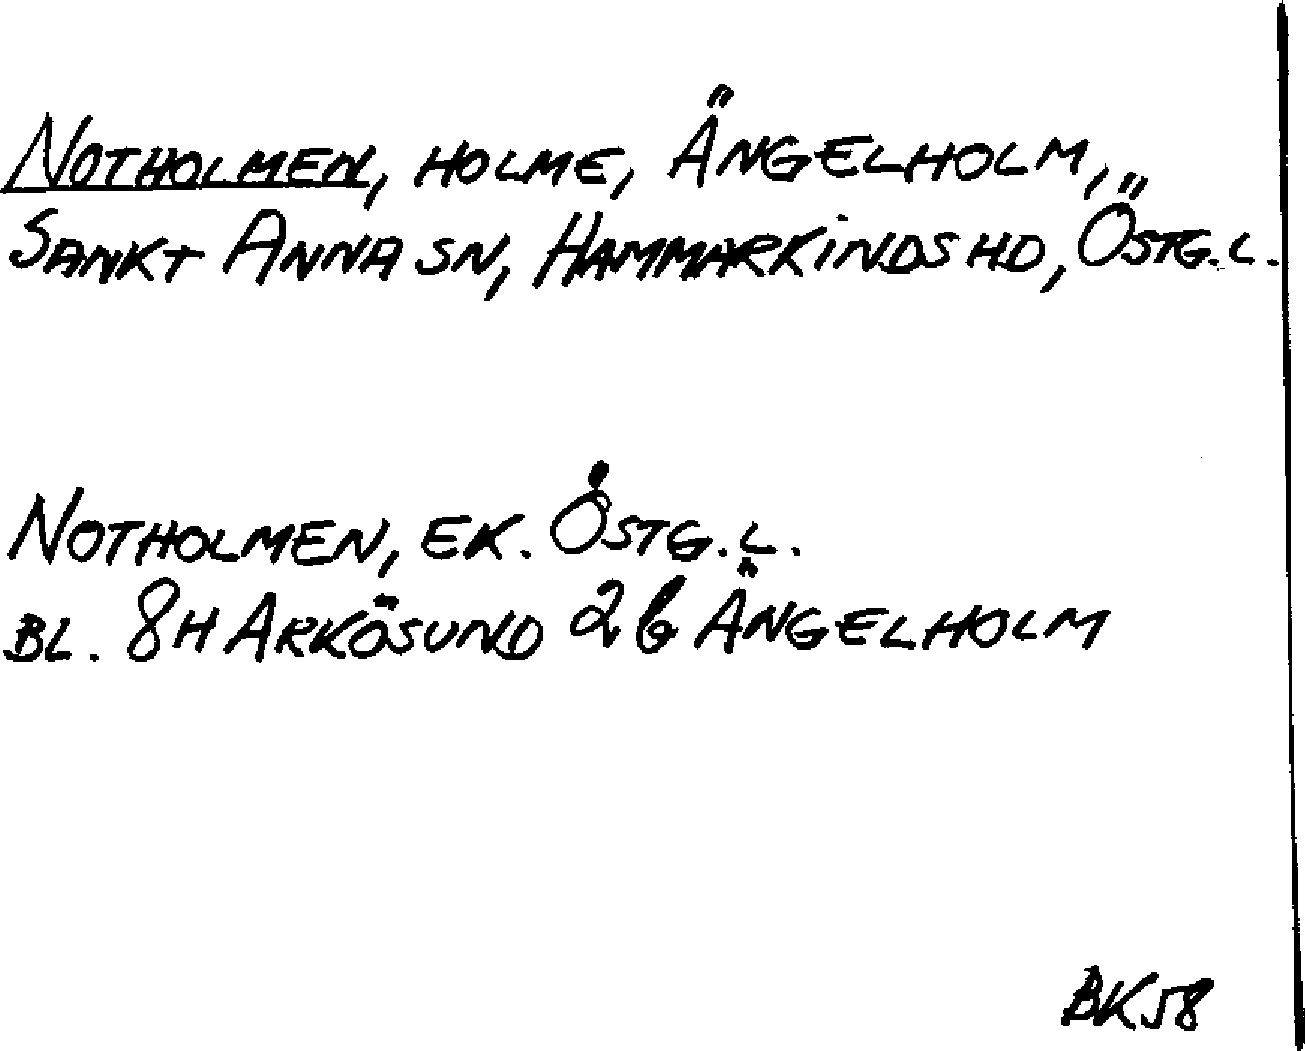 NOTHOLMEN, HOLME, ÄNGELHOLM,
SANKT ANNA SN, HAMMARKINDS HD, ÖSTG.L.
NOTHOLMEN, EK. ÖSTG.L.
BL. 8H ARKÖSUND 2b ÄNGELHOLM
BK58